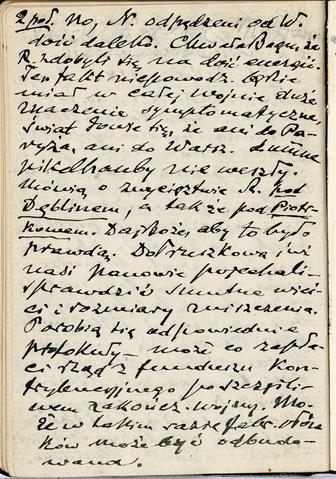 2 poł. No, N. odpędzeni od W.
dość daleko. Chwała Bogu, że
R. zdobyli się na dość energii.
Ten fakt niepowodz. będzie
miał w całej wojnie duże
znaczenie symptomatyczne,
świat dowie się, że ani do Pa-
ryża, ani do Warsz. dumne
pikelhauby nie weszły.
Mówią o zwycięztwie R. pod
Dęblinem, a także pod Piotr-
kowem. Daj Boże, aby to było
prawdą. Do Pruszkowa już
nasi panowie pojechali -
sprawdzić smutne wieś-
ci i rozmiary zniszczenia.
Porobią się odpowiednie
protokuły - może co zapła-
ci rząd z funduszu Kon-
trybucyjnego po szczęśli-
wem zakończ. wojny. Mo-
że w takim razie fabr. ołów-
ków może być odbudo-
wana.